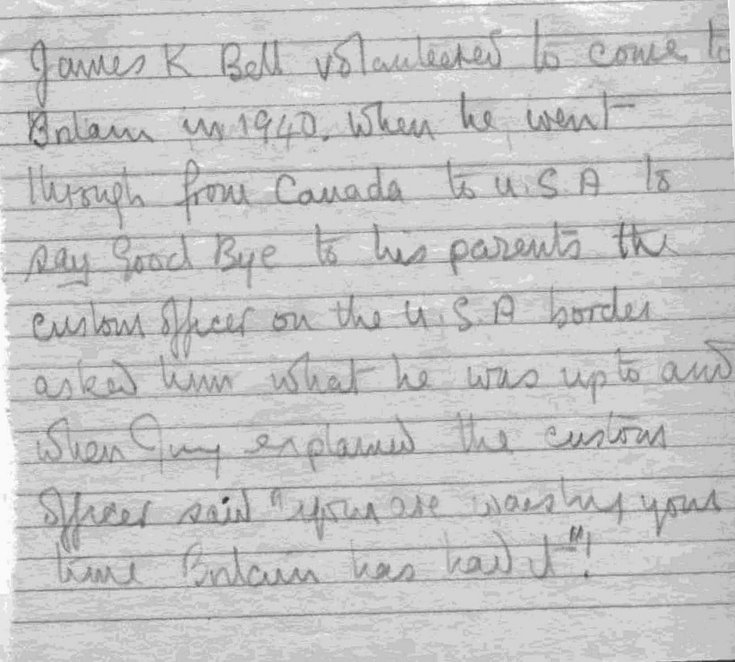 James K Bell volunteered to come to
Britain in 1940. When he went
through from Canada to U.S.A to
say Good Bye to his parents the
custom officer on the U.S.A border
asked him what he was up to and
when Jimmy explained the custom
officer said "your are wasting your
time Britain has had it"!